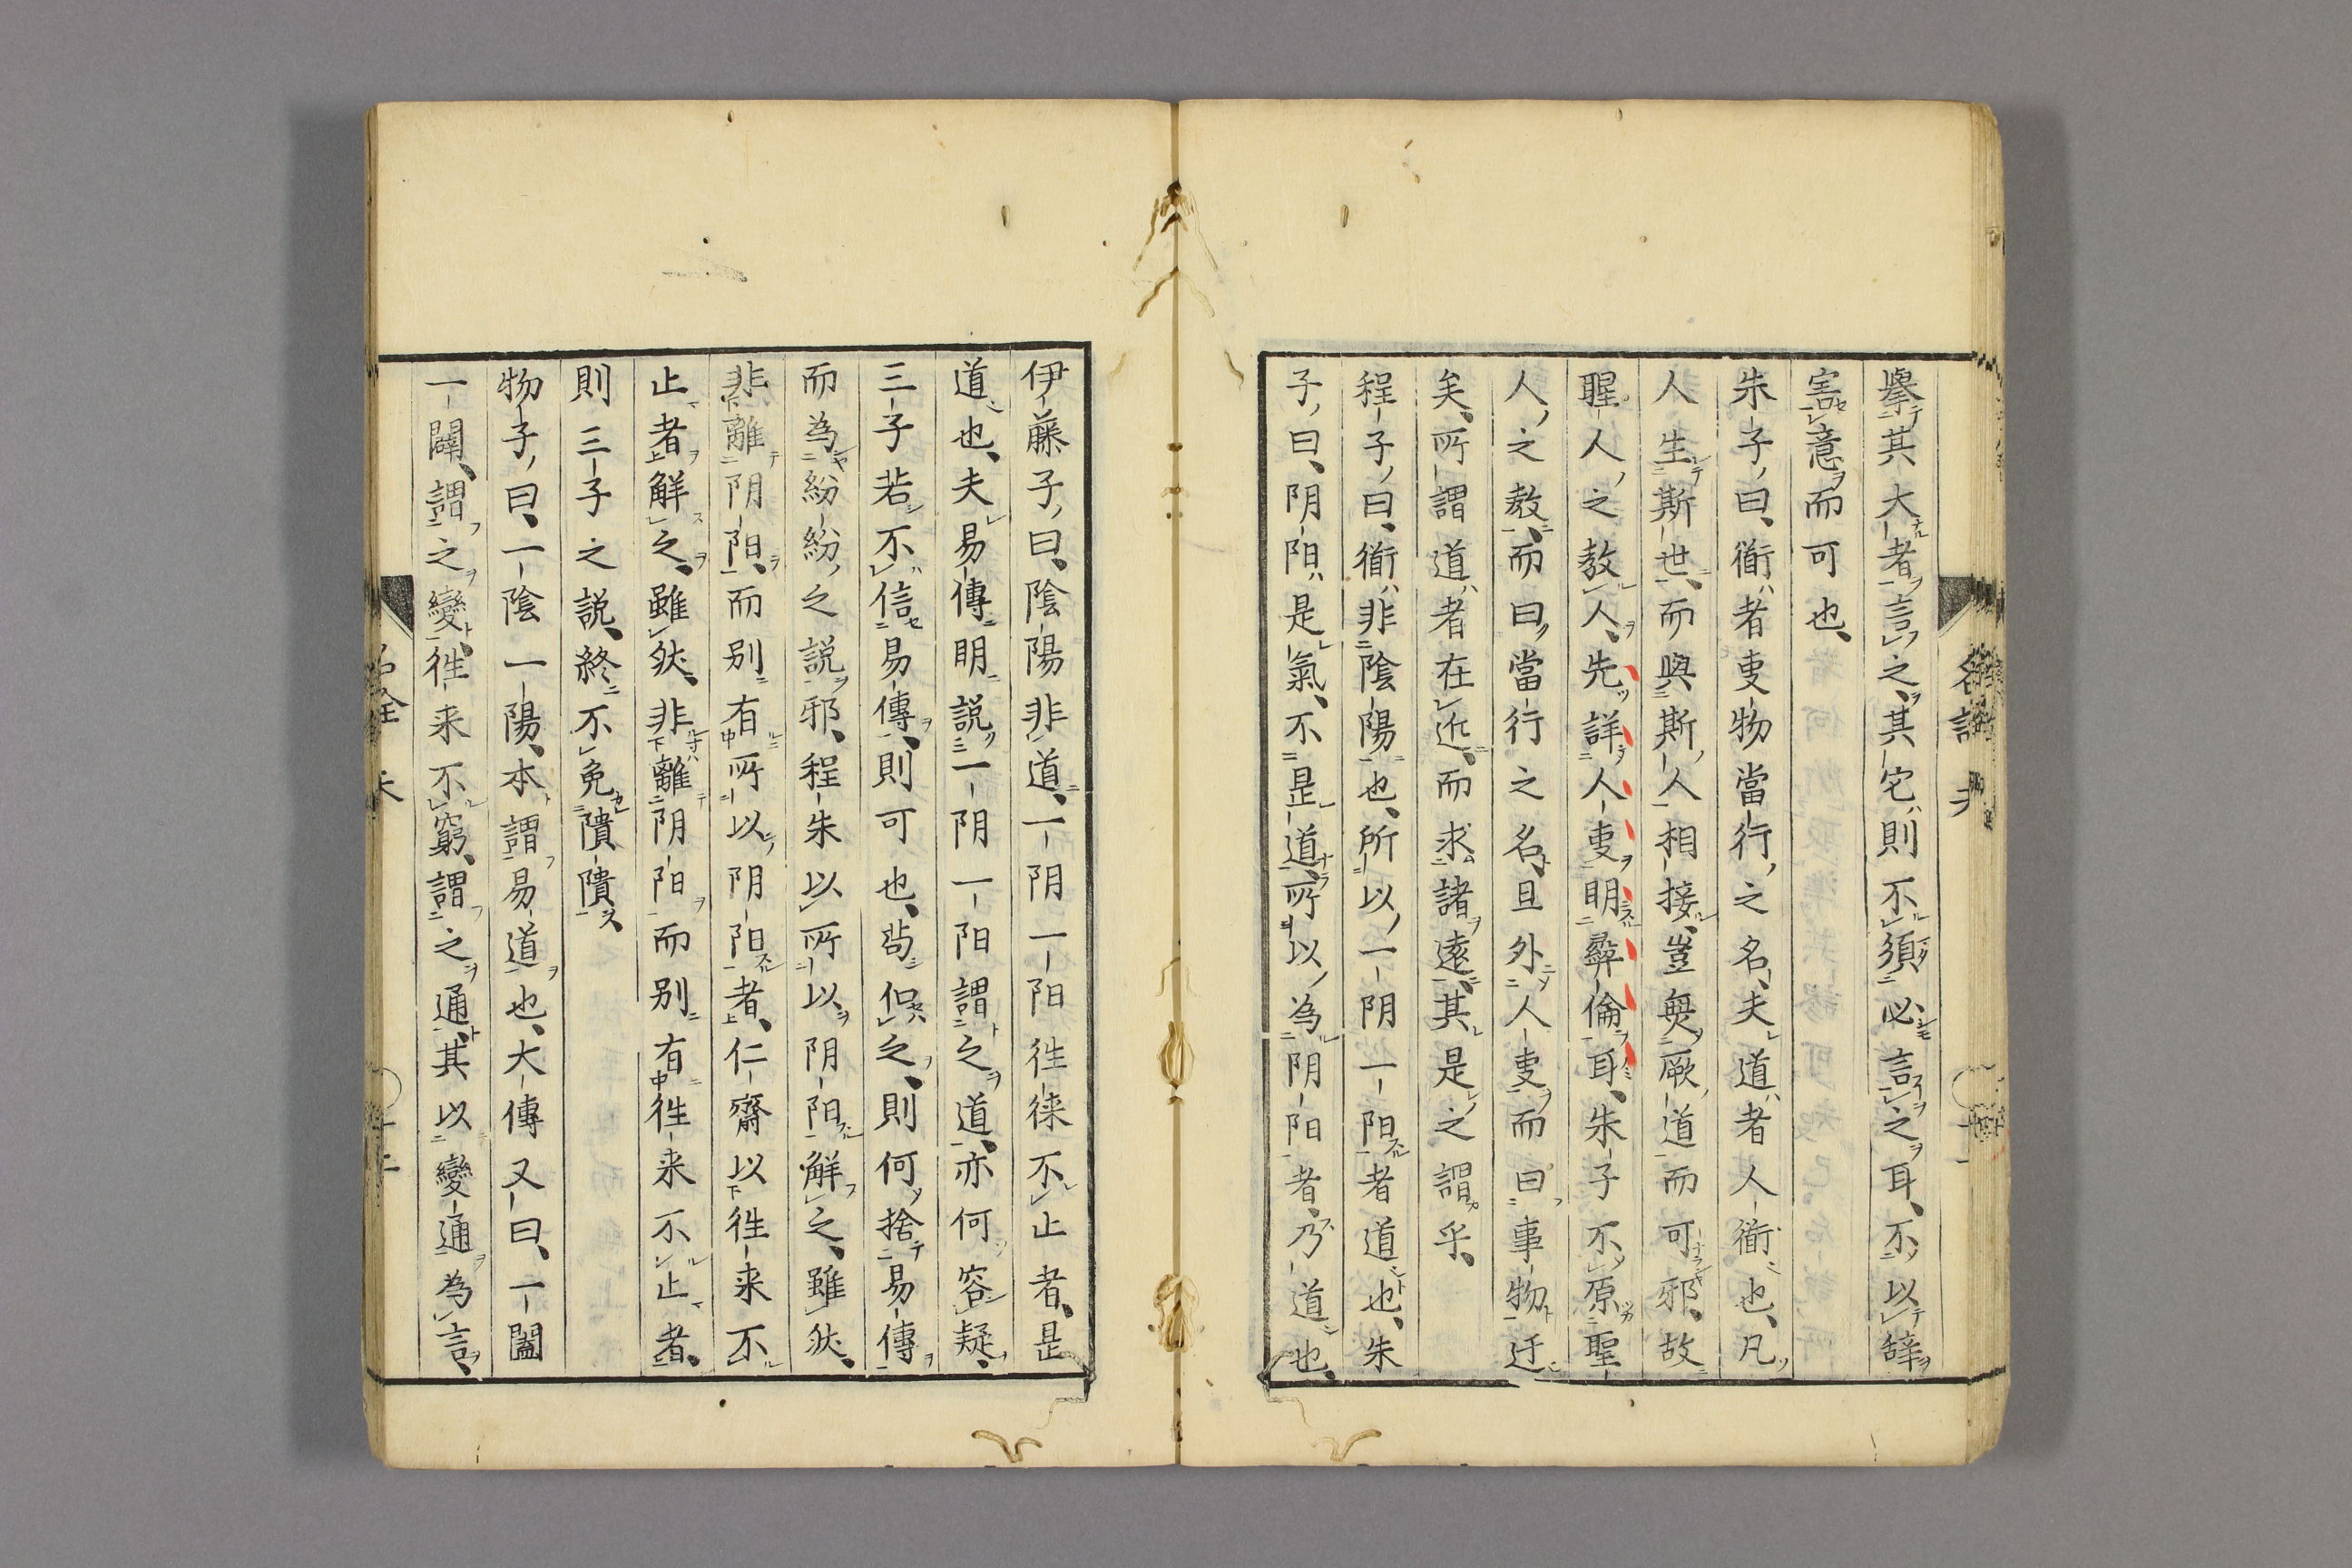 擧其大者言之、其宅則不須必言之耳、不以辭
害意而可也、
朱子曰、衜者叓物當行之名、夫道者人衜也、凡
人生斯世、而與斯人相接、豈無厥道而可邪、故
聖人之教人、先詳人叓明彝倫耳、朱子不原聖
人之教、而曰當行之名、且外人叓而曰事物迂
矣、所謂道者在近、而求諸遠、其是之謂乎、
程子曰、衜非陰陽也、所以一阴一阳者道也、朱
子曰、阴阳是氣、不是道、所以為阴阳者、乃道也、
伊藤子曰、陰陽非道、一阴一阳徃徠不止者、是
道也、夫易傳明説一阴一阳謂之道、亦何容疑、
三子若不信易傳、則可也、苟但之、則何捨易傳
而為紛紛之説邪、程朱以所以阴阳解之、雖然、
非離阴阳、而别有所以阴阳者、仁齋以徃来不
止者解之、雖然、非離阴阳而别有徃来不止者、
則三子之説、終不免隤隤、
物子曰、一陰一陽、本謂易道也、大傳又曰、一闔
一闢、謂之變、徃来不窮、謂之通、其以變通為言、